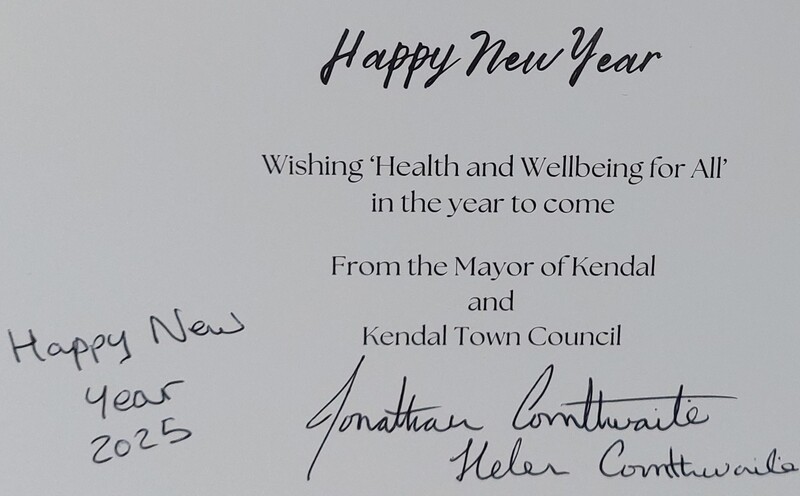 Happy New Year
Wishing ‘Health and Wellbeing for All’
in the year to come
From the Mayor of Kendal
and
Kendal Town Council
Happy New
Year
2025
Jonathan Cornthwaite
Helen Cornthwaite